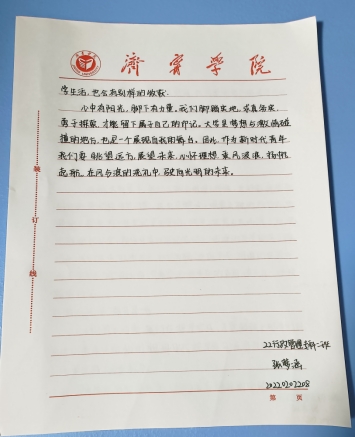 济宁学院
学生活,也会有别样的收获.
心中有阳光,脚下有力量。我们脚踏实地,求真务实,
勇于探索,才能留下属于自己的印记。大学是梦想与激情碰
撞的地方,也是一个展现自我的舞台。因此,作为新时代青年
我们要眺望远方,展望未来,心怀理想,乘风破浪,扬帆
起航,在风与浪的洗礼中,驶向光明的未来。
装
订
线
22行政管理专科二班
张梦涵
20220202208
第 页